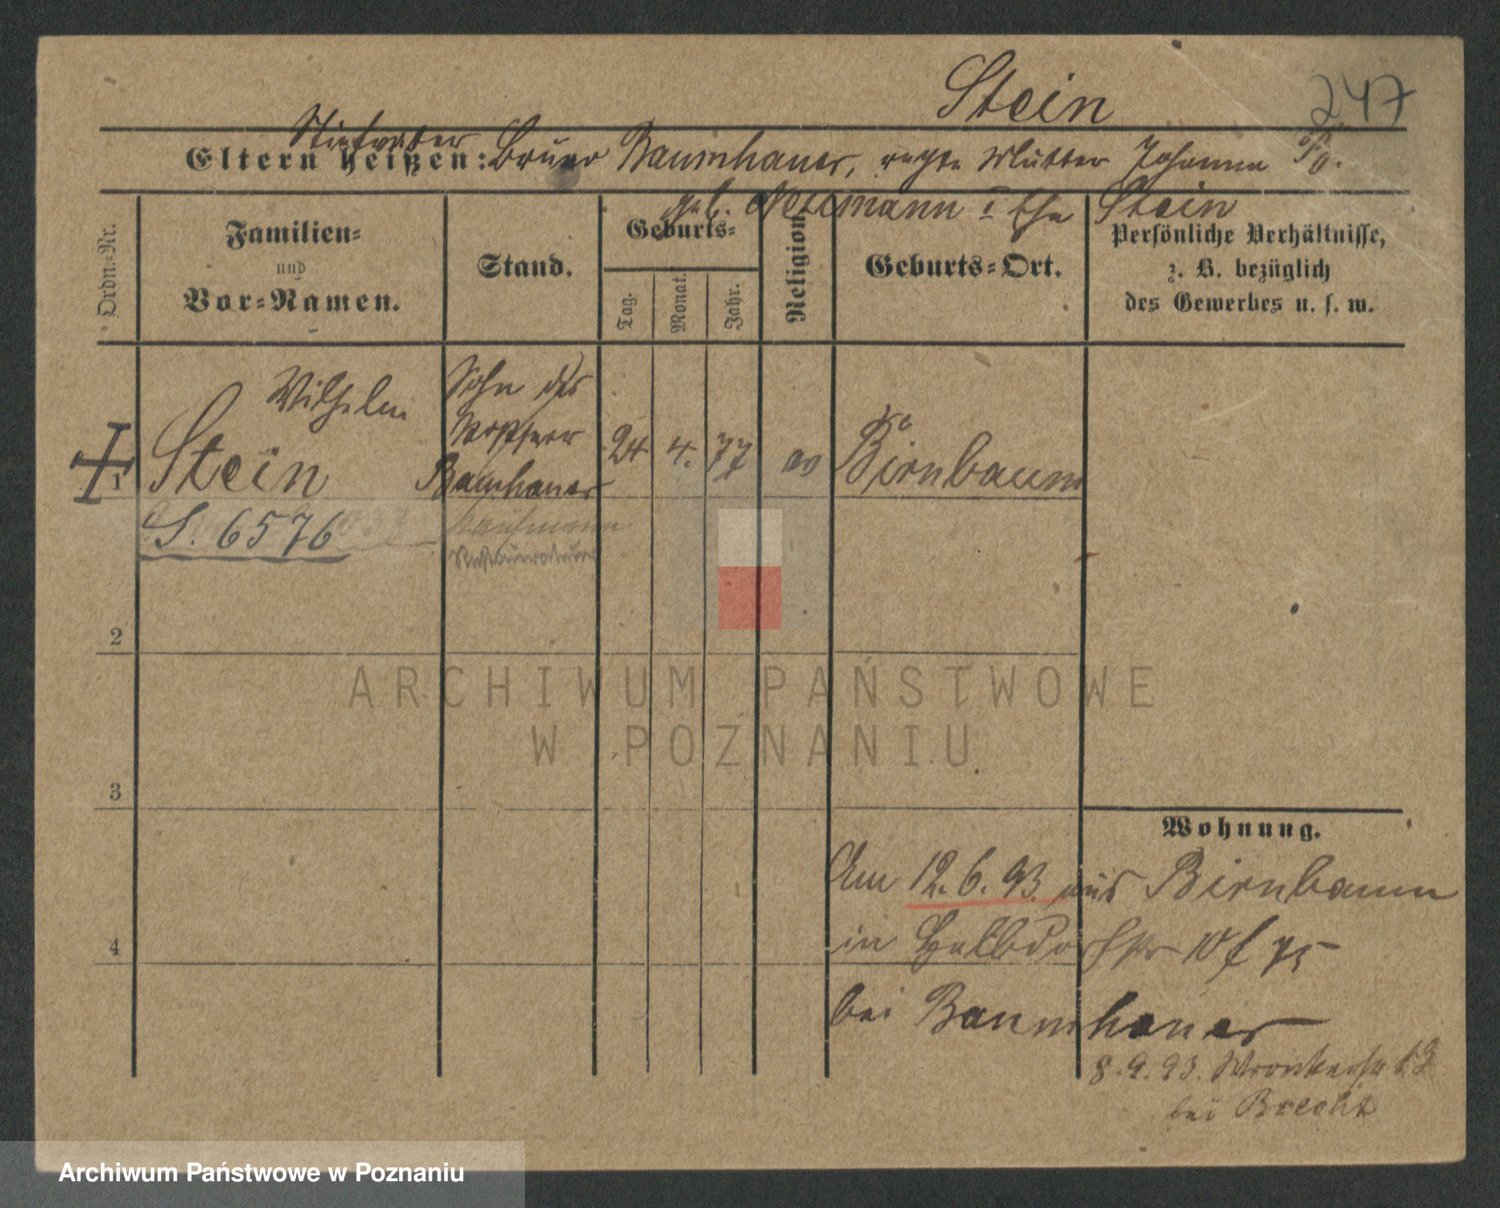 Stein
247
Stiefvater
Eltern heißen: Bruno Baumhauer, rechte Mutter Johanna
geb. Neumann I Ehe Stein
Ordn.-Nr.
Familien-
und
Vor-Namen.
Stand.
Geburts-
Tag.
Monat.
Jahr.
Religion.
Geburts-Ort.
Persönliche Verhältnisse,
z. B. bezüglich
des Gewerbes u. s. w.
1
Wilhelm
Stein
S. 6576
Sohn des
Baumhauer
Kaufmann
Restaurateur
24
4.
77
ev
Birnbaum
2
3
4
Wohnung.
Am 12.6.93. aus Birnbaum
in Halbdorfstr 10 f 75
bei Baumhauer
8.9.93. Wronkerstr 19
bei Brecht
ARCHIWUM PAŃSTWOWE
W POZNANIU
Archiwum Państwowe w Poznaniu